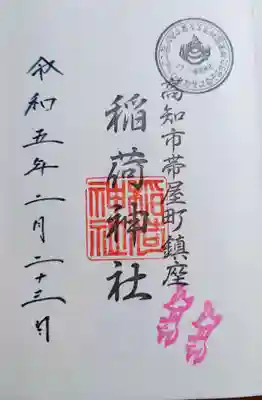 高知市帯屋町鎮座
稲荷神社
稲荷神社
令和五年二月二十三日